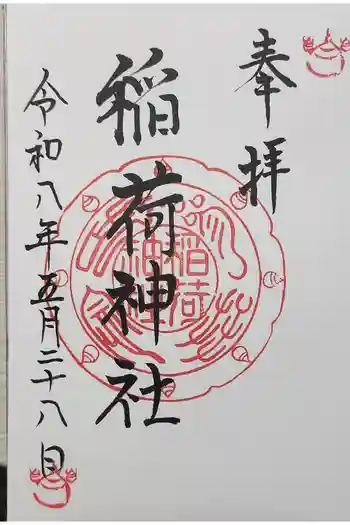 奉拝
稲荷神社
令和八年五月二十八日
稲荷